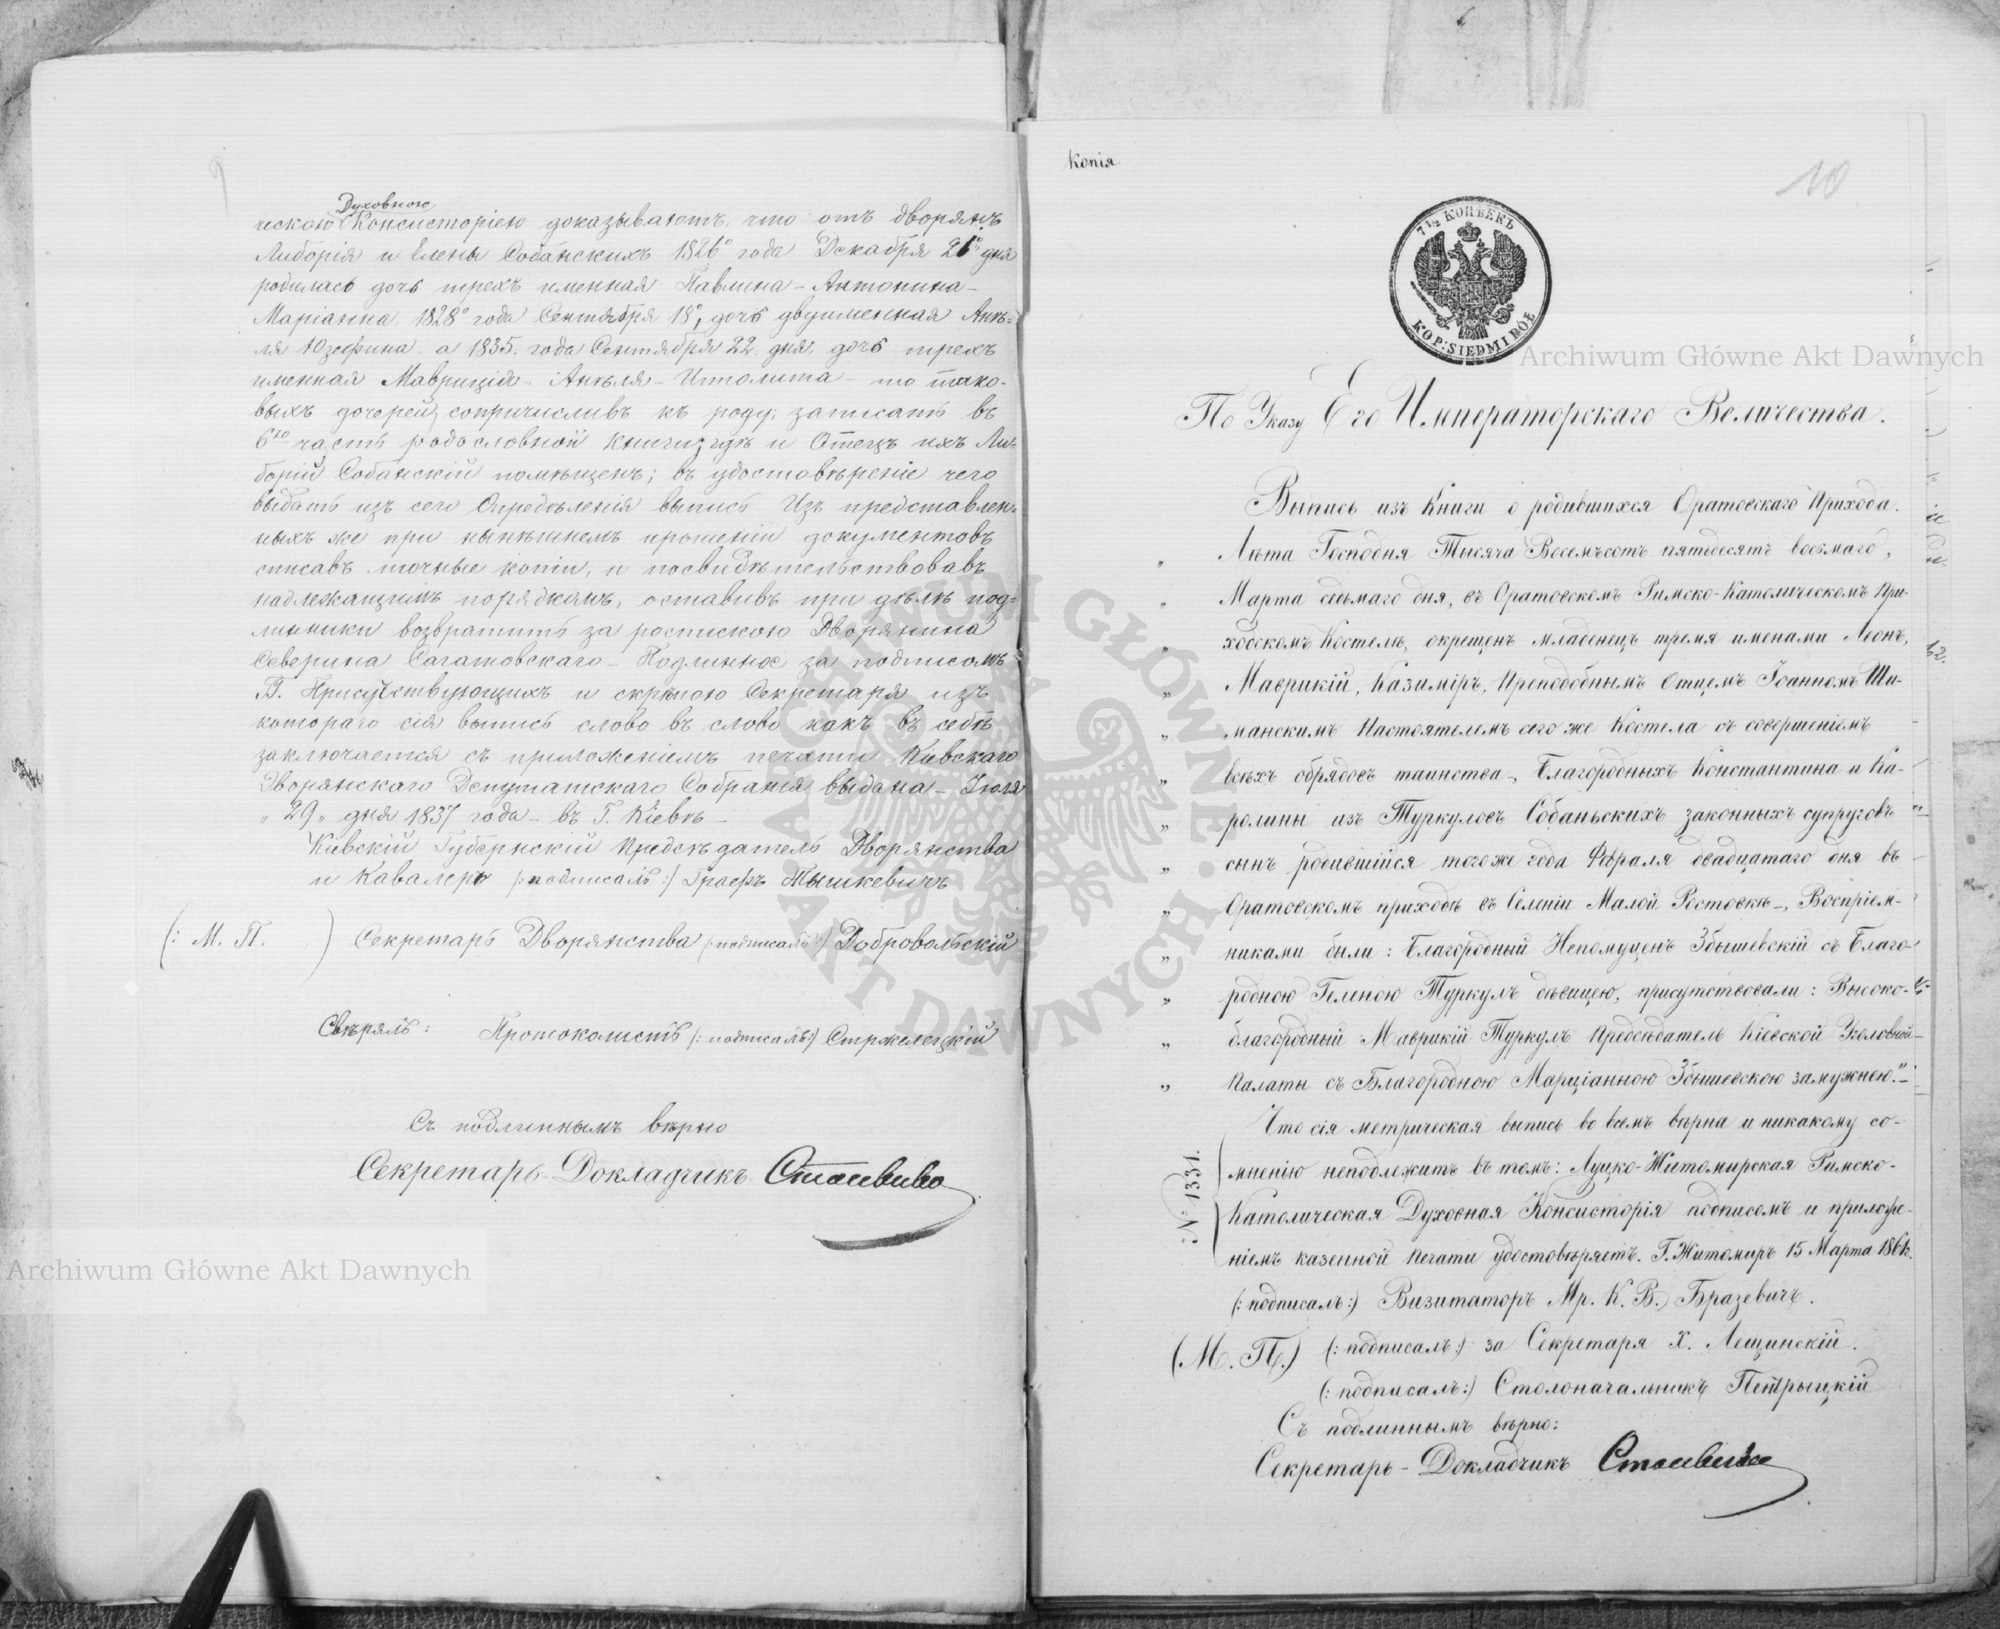 9
Духовною
ческою Консисторіею доказываютъ, что отъ дворянъ
Либорія и Елены Собанскихъ 1826го года Декабря 26го дня
родилась дочь трехъ именная Павлина – Антонина –
Маріанна, 1828го года Сентября 18го, дочь двуименная Анѣ-
ля Юзефина – а 1835. года Сентября 22 дня, дочь трехъ
именная Мавриція – Анѣля – Ипполита – то тако-
выхъ дочерей, сопричисливъ къ роду, записать въ
6ю часть родословной книги, гдѣ и Отецъ ихъ Ли-
борій Собанскій помѣщенъ; въ удостовѣреніе чего
выдать изъ сего Опредѣленія выпись. Изъ представлен-
ныхъ же при нынѣшнемъ прошеніи документовъ
списавъ точные копіи, и посвидѣтельствовавъ
надлежащимъ порядкомъ, оставивъ при дѣлѣ под-
линники возвратить за роспискою Дворянина
Северина Сагатовскаго – Подлинное за подписомъ
Г. Присутствующихъ и скрѣпою Секретаря изъ
котораго сія выпись слово въ слово какъ въ себѣ
заключается съ приложеніемъ печати Кіевскаго
Дворянскаго Депутатскаго Собранія выдана – Іюля
„ 29 „ дня 1837 года – въ Г. Кіевѣ –
Кіевскій Губернскій Предсѣдатель Дворянства
и Кавалеръ (: подписалъ :) Графъ Тышкевичъ
(: М. П. ) Секретарь Дворянства (: подписалъ :) Добровольскій
Свѣрялъ: Протоколистъ (: подписалъ :) Стржелецкій
Съ подлиннымъ вѣрно
Секретарь – Докладчикъ
Копія
10
7½ КОПѢЕКЪ
KOP: SIEDMIPÓŁ
По Указу Его Императорскаго Величества.
Выпись изъ Книги о родившихся Оратовскаго Прихода.
„ Лѣта Господня Тысяча Восемьсотъ пятьдесятъ восьмаго,
„ Марта седьмаго дня, въ Оратовскомъ Римско-Католическомъ При-
„ ходскомъ Костелѣ, окрещенъ младенецъ тремя именами Леонъ,
„ Маврикій, Казиміръ, Преподобнымъ Отцемъ Іоанномъ Ши-
„ манскимъ Настоятелемъ сего же Костела съ совершеніемъ
„ всѣхъ обрядовъ таинства –, Благородныхъ Константина и Ка-
„ ролины изъ Туркуловъ Собаньскихъ законныхъ супруговъ
„ сынъ родившійся тогоже года Февраля двадцатаго дня въ
„ Оратовскомъ приходѣ въ Селеніи Малой Ростовкѣ –, Воспріем-
„ никами были: Благородный Непомуценъ Збышевскій съ Благо-
„ родною Геленою Туркулъ дѣвицею, присутствовали: Высоко-
„ благородный Маврикій Туркулъ Предсѣдатель Кіевской Уголовной
„ Палаты съ Благородною Марціанною Збышевскою замужнею.“ –
Что сія метрическая выпись во всемъ вѣрна и никакому со-
мнѣнію неподлежитъ въ томъ: Луцко-Житомирская Римско-
Католическая Духовная Консисторія подписомъ и приложе-
ніемъ казенной печати удостовѣряетъ. Г. Житомиръ 15 Марта
№ 1331.
(: подписалъ :) Визитаторъ Мр. К. В. Бразевичъ.
(М. П.) (: подписалъ :) за Секретаря Х. Лещинскій.
(: подписалъ :) Столоначальникъ Петрыцкій
Съ подлиннымъ вѣрно:
Секретарь – Докладчикъ
Archiwum Główne Akt Dawnych
Archiwum Główne Akt Dawnych
ARCHIWUM GŁÓWNE · AKT DAWNYCH ·